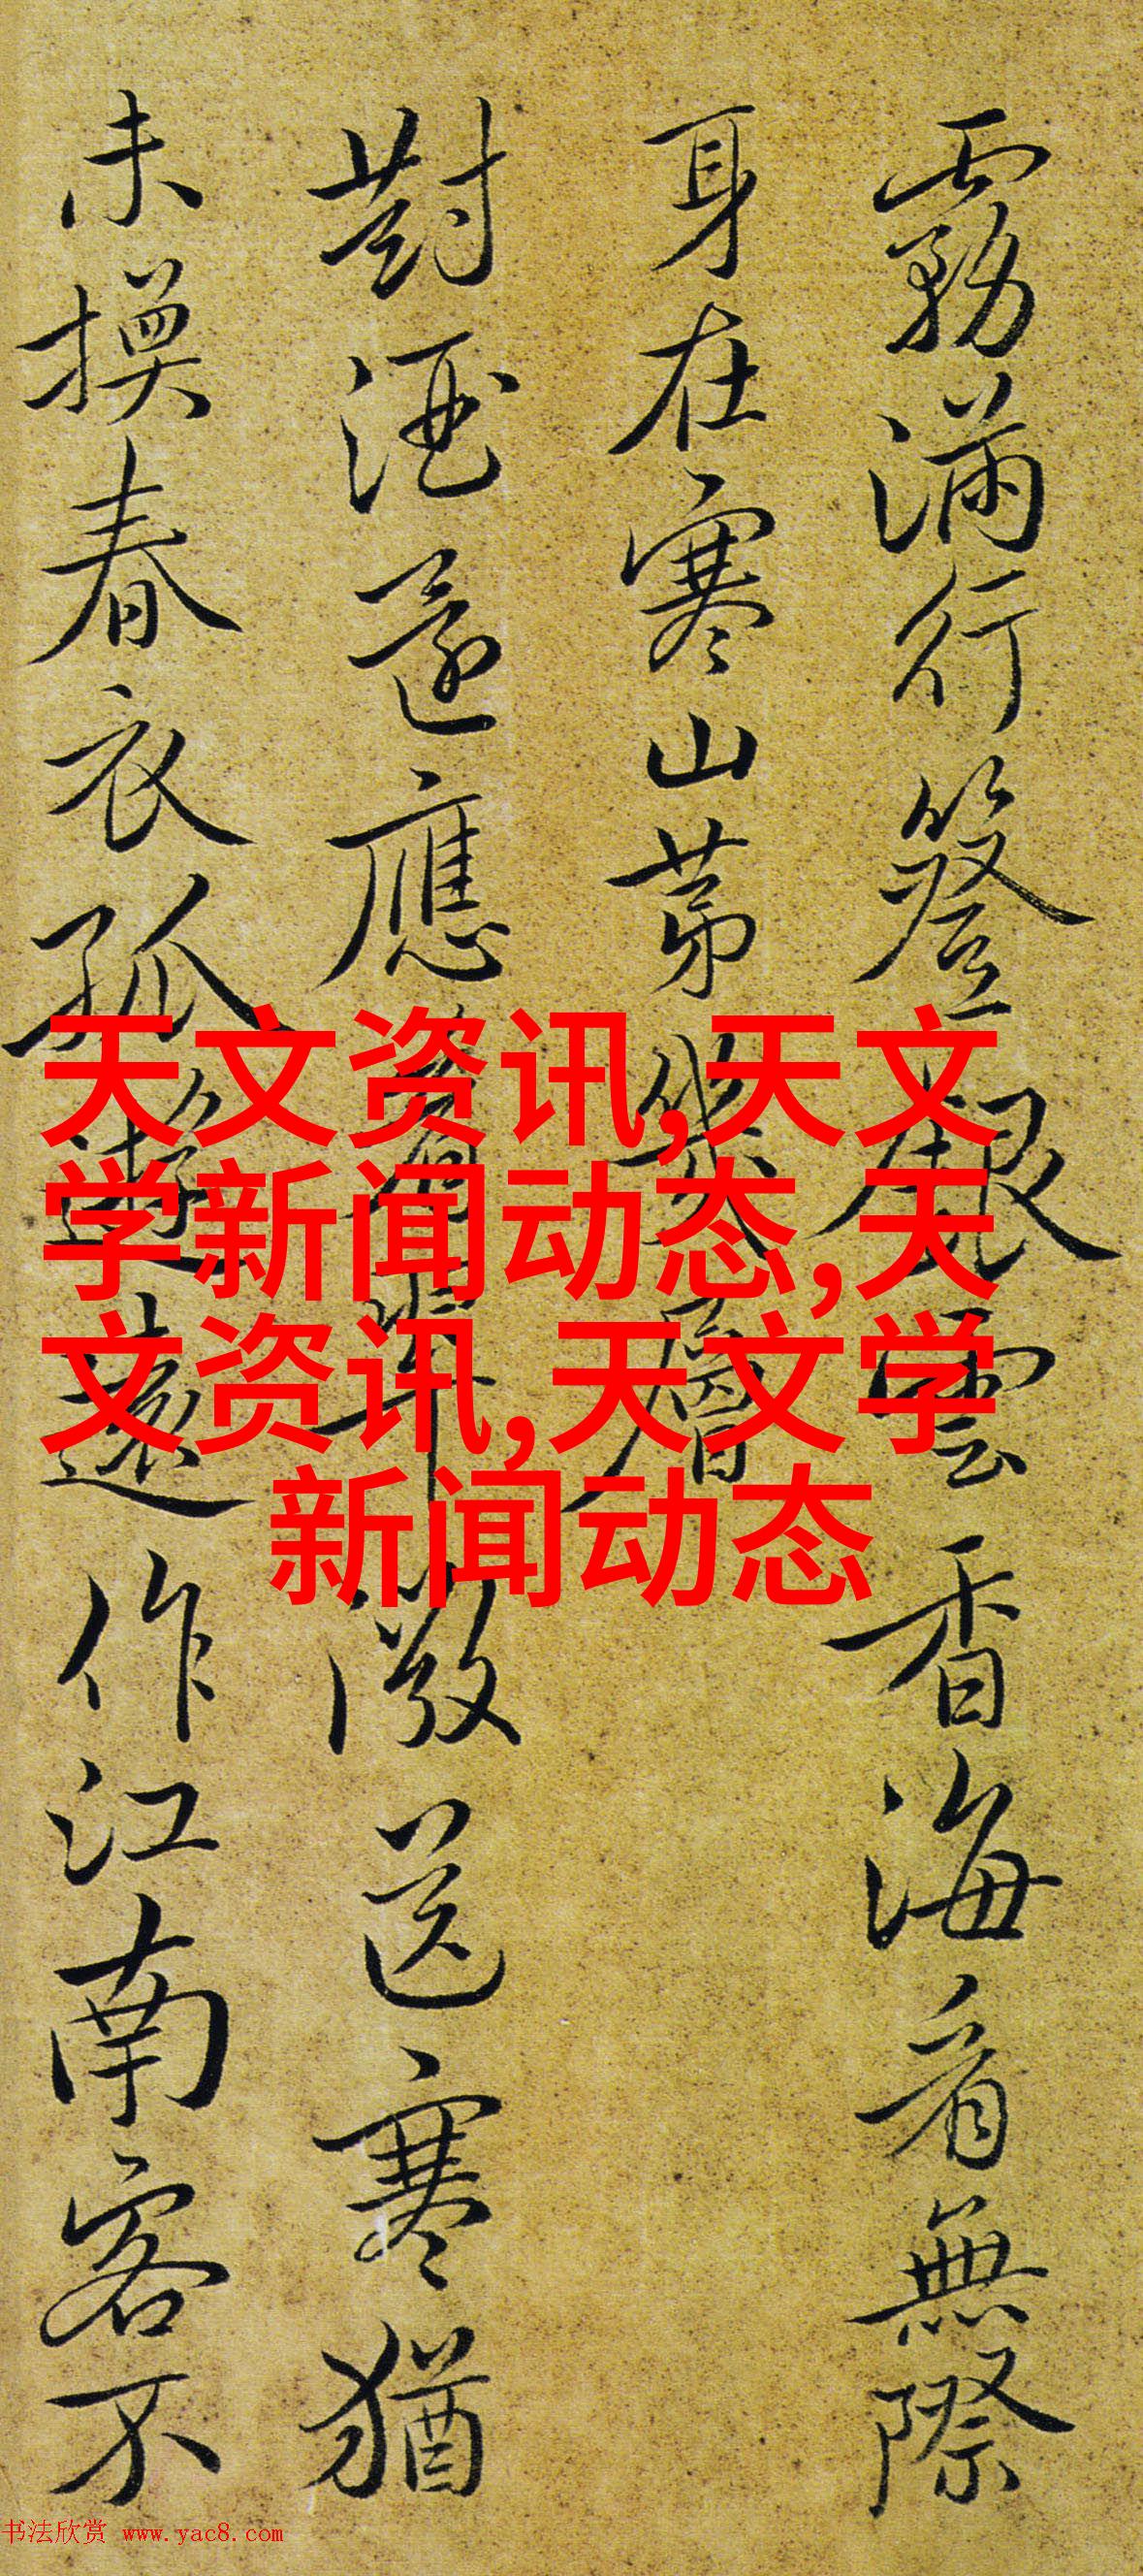 霧滿行簦銀雲香海看無際
身在寒山第幾層
對酒還應 送寒猶
未換春衣孤遊遠作江南客不
天文资讯,天文
学新闻动态,天
文资讯,天文学
新闻动态
书法欣赏 www.yac8.com